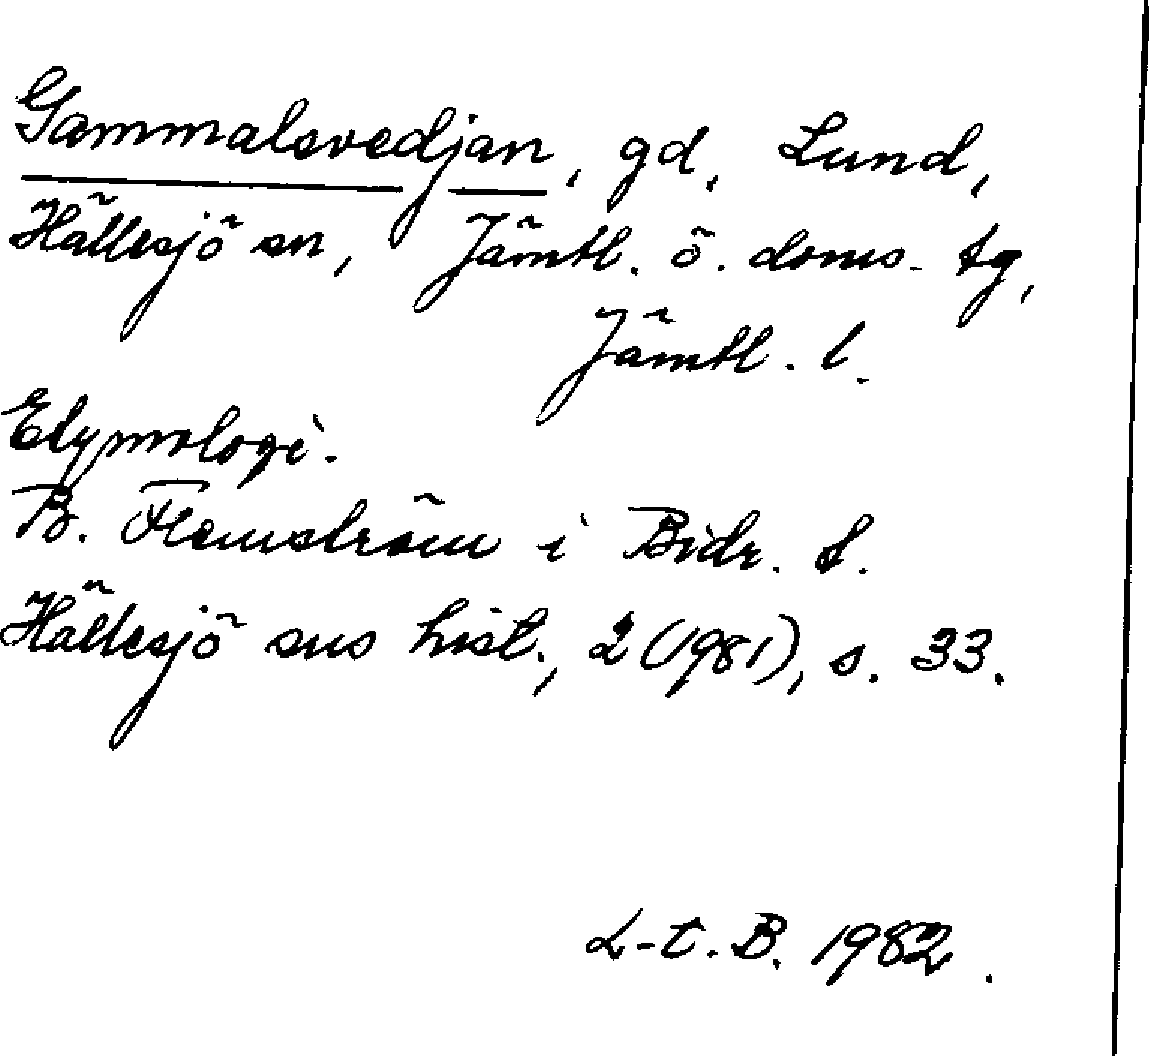 Gammalsvedjan, gd, Lund,
Hällesjö sn, Jämtl. ö. doms. tg,
Jämtl. l.
Etymologi.
B. Flemström i Bidr. t.
Hällesjö sns hist., 2 (1981), s. 33.
L-t. B. 1982.